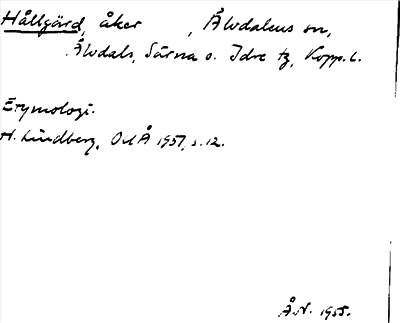 Hållgärd, åker , Älvdalens sn,
Älvdals, Särna o. Idre tg, Kopp. l.
Etymologi.
H. Lindberg, OUÅ 1957, s. 12.
Å.N. 1958.